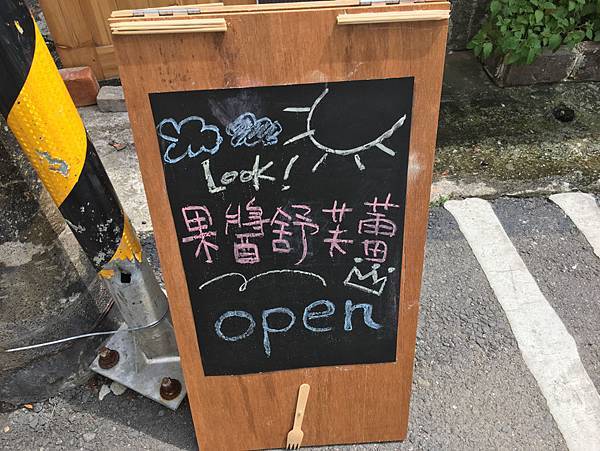 Look!
果醬舒芙蕾
open